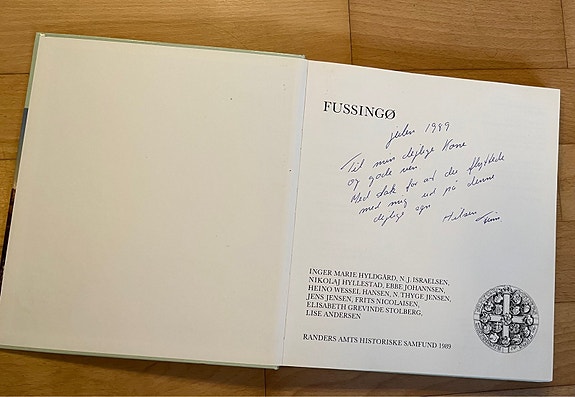 FUSSINGØ
julen 1989
Til min dejlige kone
og gode ven
Med tak for at du flyttede
med mig ud på denne
dejlige egn
Hilsen
INGER MARIE HYLDGÅRD, N. J. ISRAELSEN,
NIKOLAJ HYLLESTAD, EBBE JOHANNSEN,
HEINO WESSEL HANSEN, N. THYGE JENSEN,
JENS JENSEN, FRITS NICOLAISEN,
ELISABETH GREVINDE STOLBERG,
LISE ANDERSEN
RANDERS AMTS HISTORISKE SAMFUND 1989